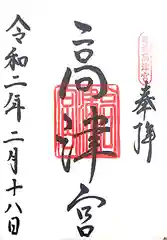 奉拝
高津宮
令和二年二月十八日